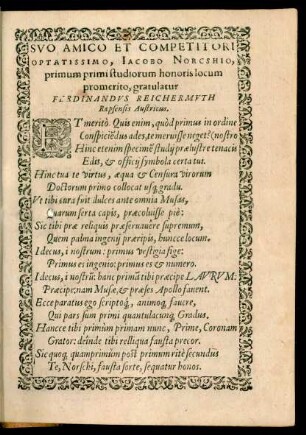 SVO AMICO ET COMPETITORI
OPTATISSIMO, IACOBO NORCSHIO,
primum primi studiorum honoris locum
promerito, gratulatur
FERDINANDVS REICHERMVTH
Rapsensis Austriacus.
ET meritò Quis enim, quòd primus in ordine
Conspiciẽdus ades, te meruisse neget? (nostro
Hinc etenim specimẽ studij prælustre tenacis
Edit, & officij symbola certa tui.
Hinc tua te virtus, æqua & Censura virorum
Doctorum primo collocat usq; gradu.
Vt tibi cura fuit dulces ante omnia Musas,
Quarum serta capis, præcoluisse piè:
Sic tibi præ reliquis præseruauere supremum,
Quem palma ingenij præripis, huncce locum.
I decus, i nostrum: primus vestigia fige:
Primus es ingenio: primus es & numero.
I decus, i nostrũ: hanc primã tibi præcipe LAVRVM:
Præcipe: nam Musæ, & præses Apollo fauent.
Ecce paratus ego scriptoq́;, animoq́; fauere,
Qui pars sum primi quantulacunq́; Gradus.
Hancce tibi primùm primam nunc, Prime, Coronam
Grator: deinde tibi relliqua fausta precor.
Sic quoq́; quamprimùm post primum ritè secundus
Te, Norschi, fausta sorte, sequatur honos.